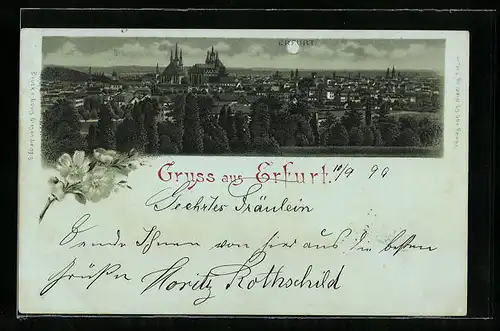 ERFURT.
Gruss aus Erfurt.
10/9 99
Geehrtes Fräulein
Sende Ihnen von hier aus die besten
Grüße Moritz Rothschild